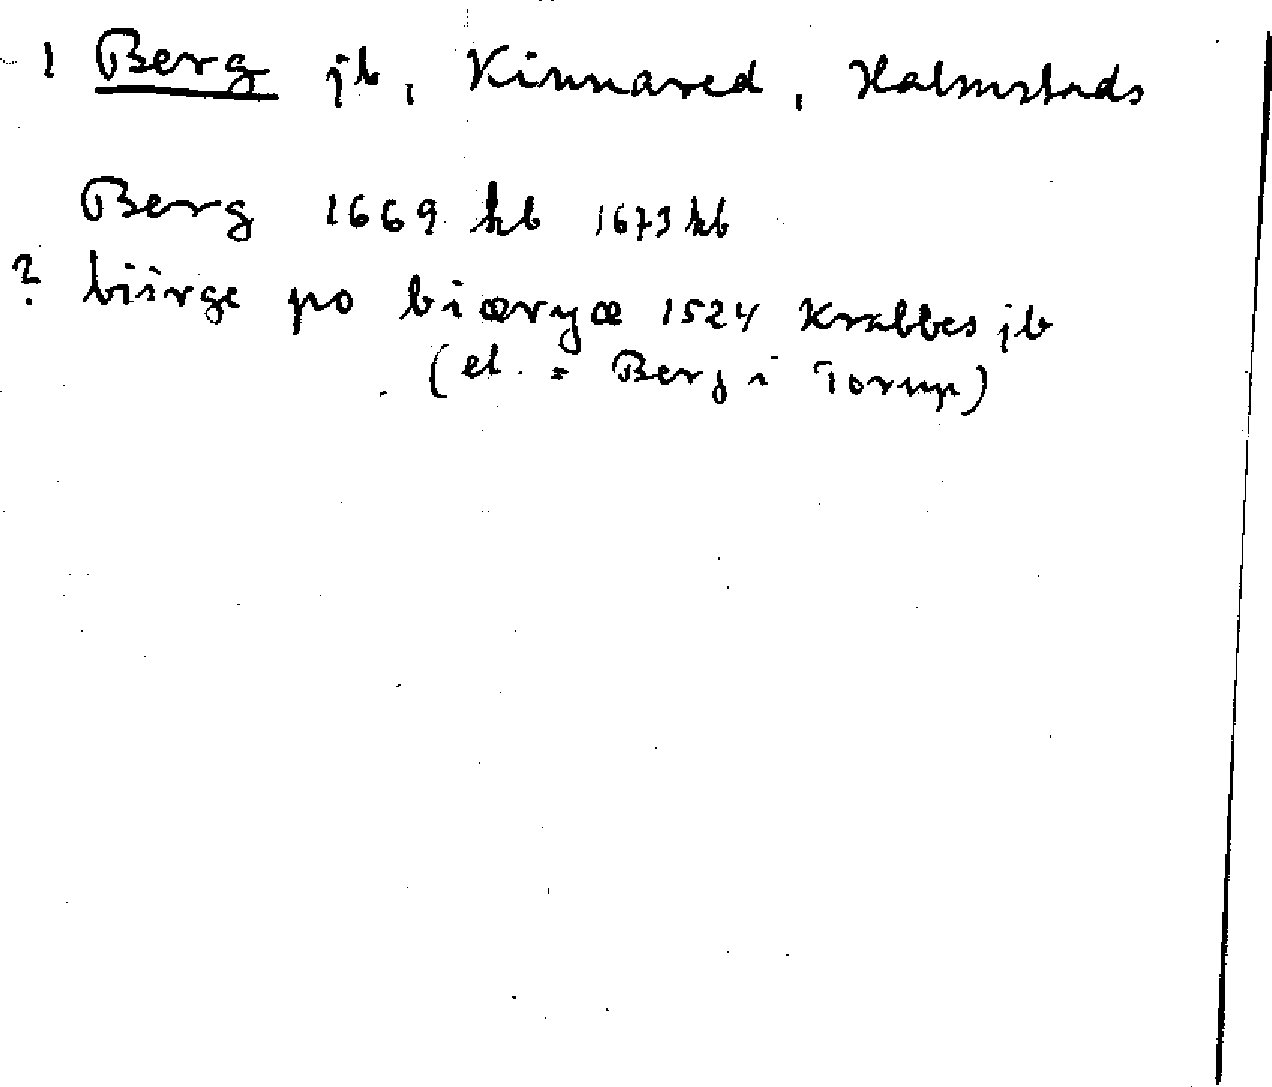 1 Berg jb, Kinnared, Halmstads
Berg 1669 hb 1673 kb
? biürge po biærgæ 1524 Krabbes jb
(el. = Berg i Torup)